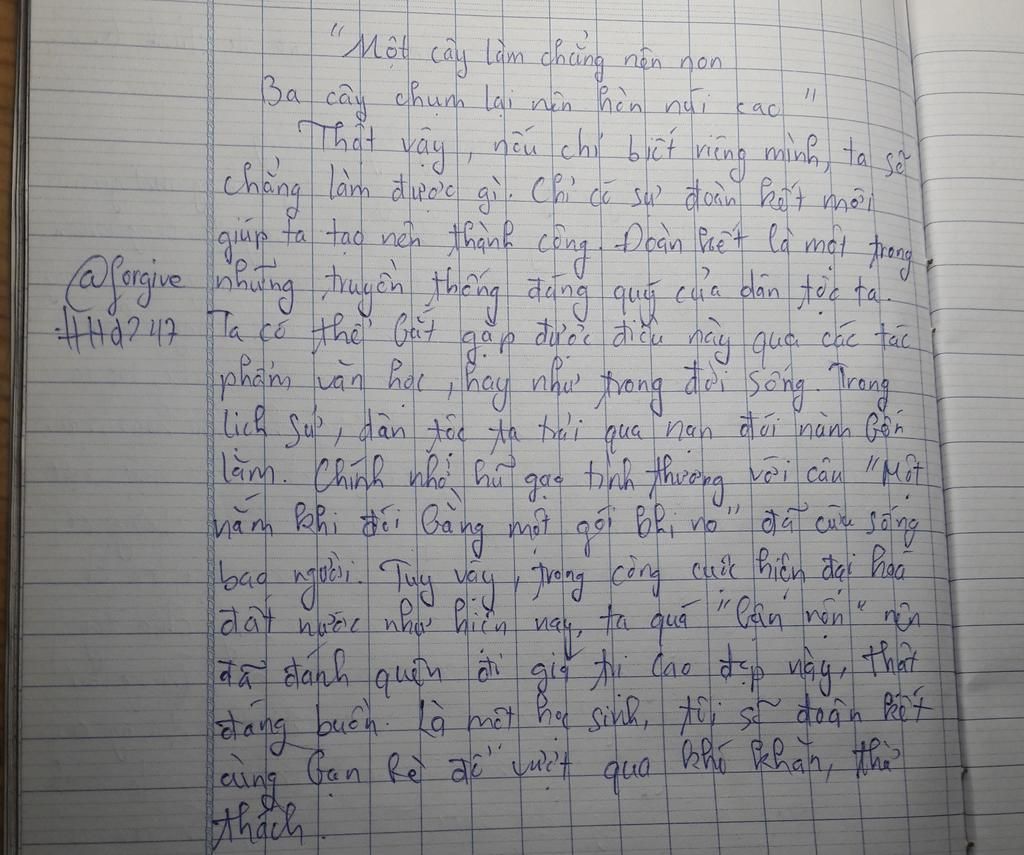 "Một cây làm chẳng nên non
Ba cây chụm lại nên hòn núi cao"
Thật vậy, nếu chỉ biết riêng mình, ta sẽ
chẳng làm được gì. Chỉ có sự đoàn kết mới
giúp ta tạo nên thành công. Đoàn kết là một trong
@forgive những truyền thống đáng quý của dân tộc ta.
#Hd747 Ta có thể bắt gặp được điều này qua các tác
phẩm văn học, hay như trong đời sống. Trong
lịch sử, dân tộc ta trải qua nạn đói năm bốn
lăm. Chính nhờ hũ gạo tình thương với câu "Một
nắm khi đói bằng một gói khi no" đã cứu sống
bao người. Tuy vậy, trong công cuộc hiện đại hoá
đất nước như hiện nay, ta quá "bận rộn" nên
đã đánh quên đi giá trị cao đẹp này, thật
đáng buồn. Là một học sinh, tôi sẽ đoàn kết
cùng bạn bè để vượt qua khó khăn, thử
thách.